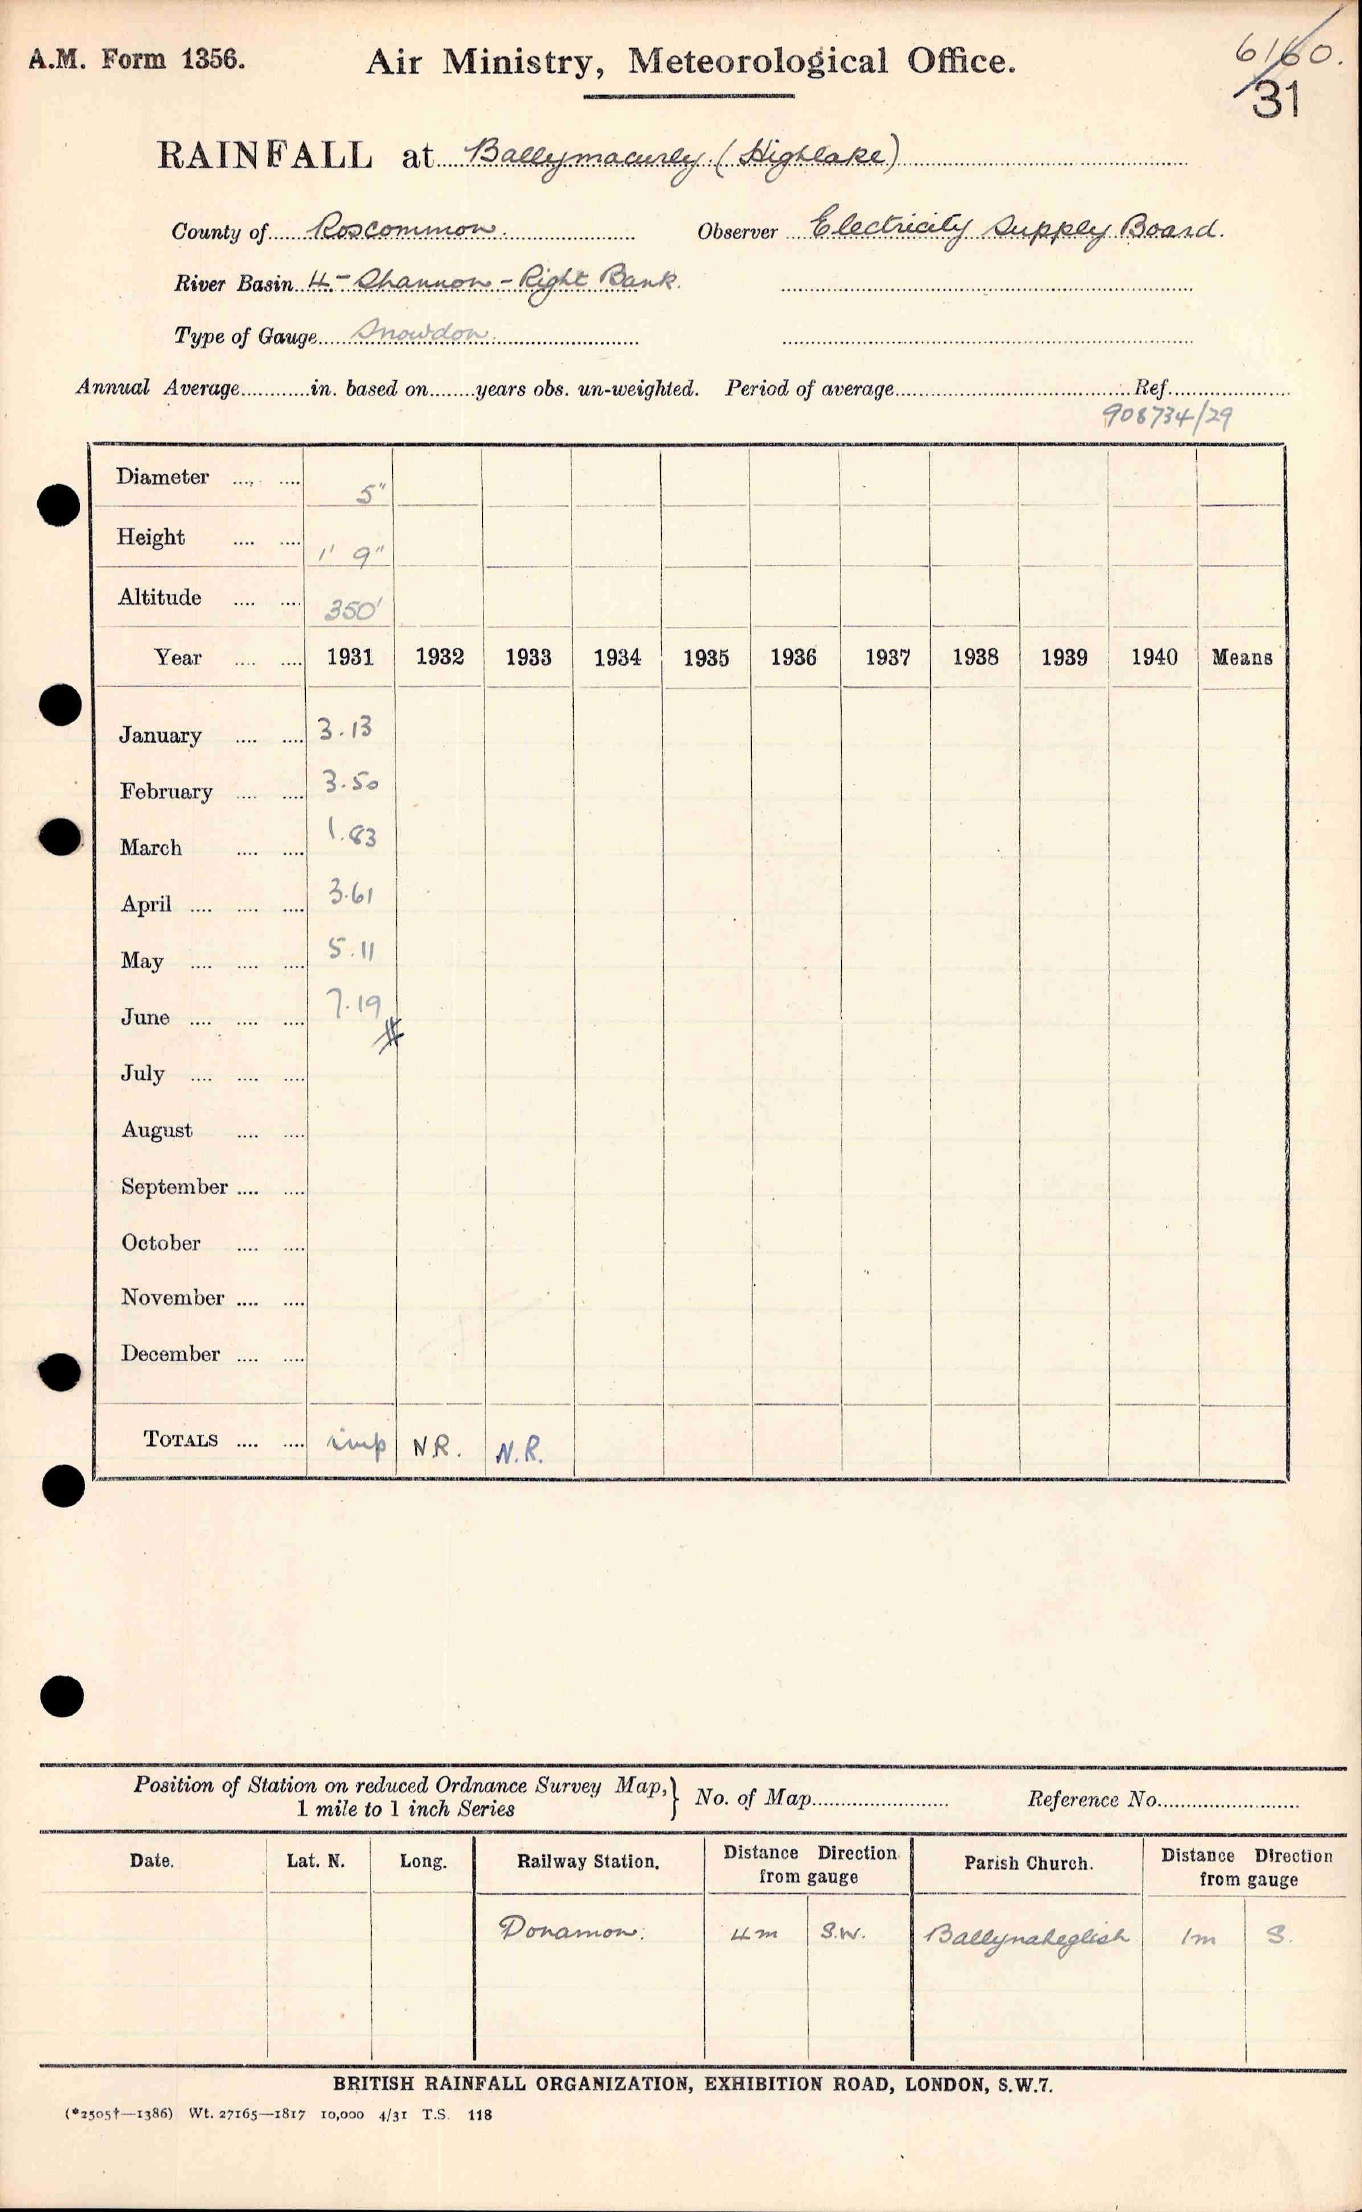 A.M. Form 1356.
Air Ministry, Meteorological Office.
6160.
31
RAINFALL at Ballymacurly (Highlake)
County of Roscommon. Observer Electricity Supply Board.
River Basin 4 - Shannon - Right Bank.
Type of Gauge Snowdon.
Annual Average............in. based on........years obs. un-weighted. Period of average........................................Ref.....................
908734/29
Diameter .... .... 5"
Height .... .... 1' 9"
Altitude .... .... 350'
Year .... .... 1931 1932 1933 1934 1935 1936 1937 1938 1939 1940 Means
January .... .... 3.13
February .... .... 3.50
March .... .... 1.83
April .... .... .... 3.61
May .... .... .... 5.11
June .... .... .... 7.19
#
July .... .... ....
August .... ....
September .... ....
October .... ....
November .... ....
December .... ....
TOTALS .... .... imp N.R. N.R.
Position of Station on reduced Ordnance Survey Map,} No. of Map....................... Reference No........................
1 mile to 1 inch Series
Date. Lat. N. Long. Railway Station. Distance Direction from gauge Parish Church. Distance Direction from gauge
Donamon. 4m S.W. Ballynaheglish 1m S.
BRITISH RAINFALL ORGANIZATION, EXHIBITION ROAD, LONDON, S.W.7.
(*2505†—1386) Wt. 27165—1817 10,000 4/31 T.S. 118